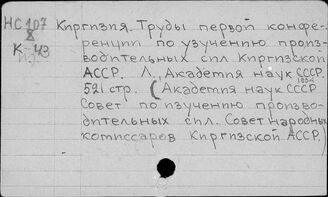 НС 107
8
К-43
Киргизия. Труды первой конфе-
ренции по узучению произ-
водительных сил Киргизской
АССР. Л., Академия наук СССР,
521 стр. (Академия наук СССР
Совет по изучению произво-
дительных сил. Совет народных
комиссаров Киргизской АССР.)